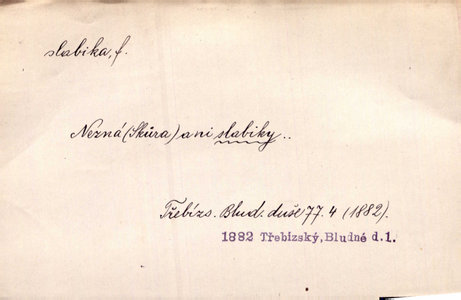 slabika, f.
Nezná (Skůra) ani slabiky..
Třebízs. Blud. duše 77. 4 (1882).
1882 Třebízský, Bludné d.1.